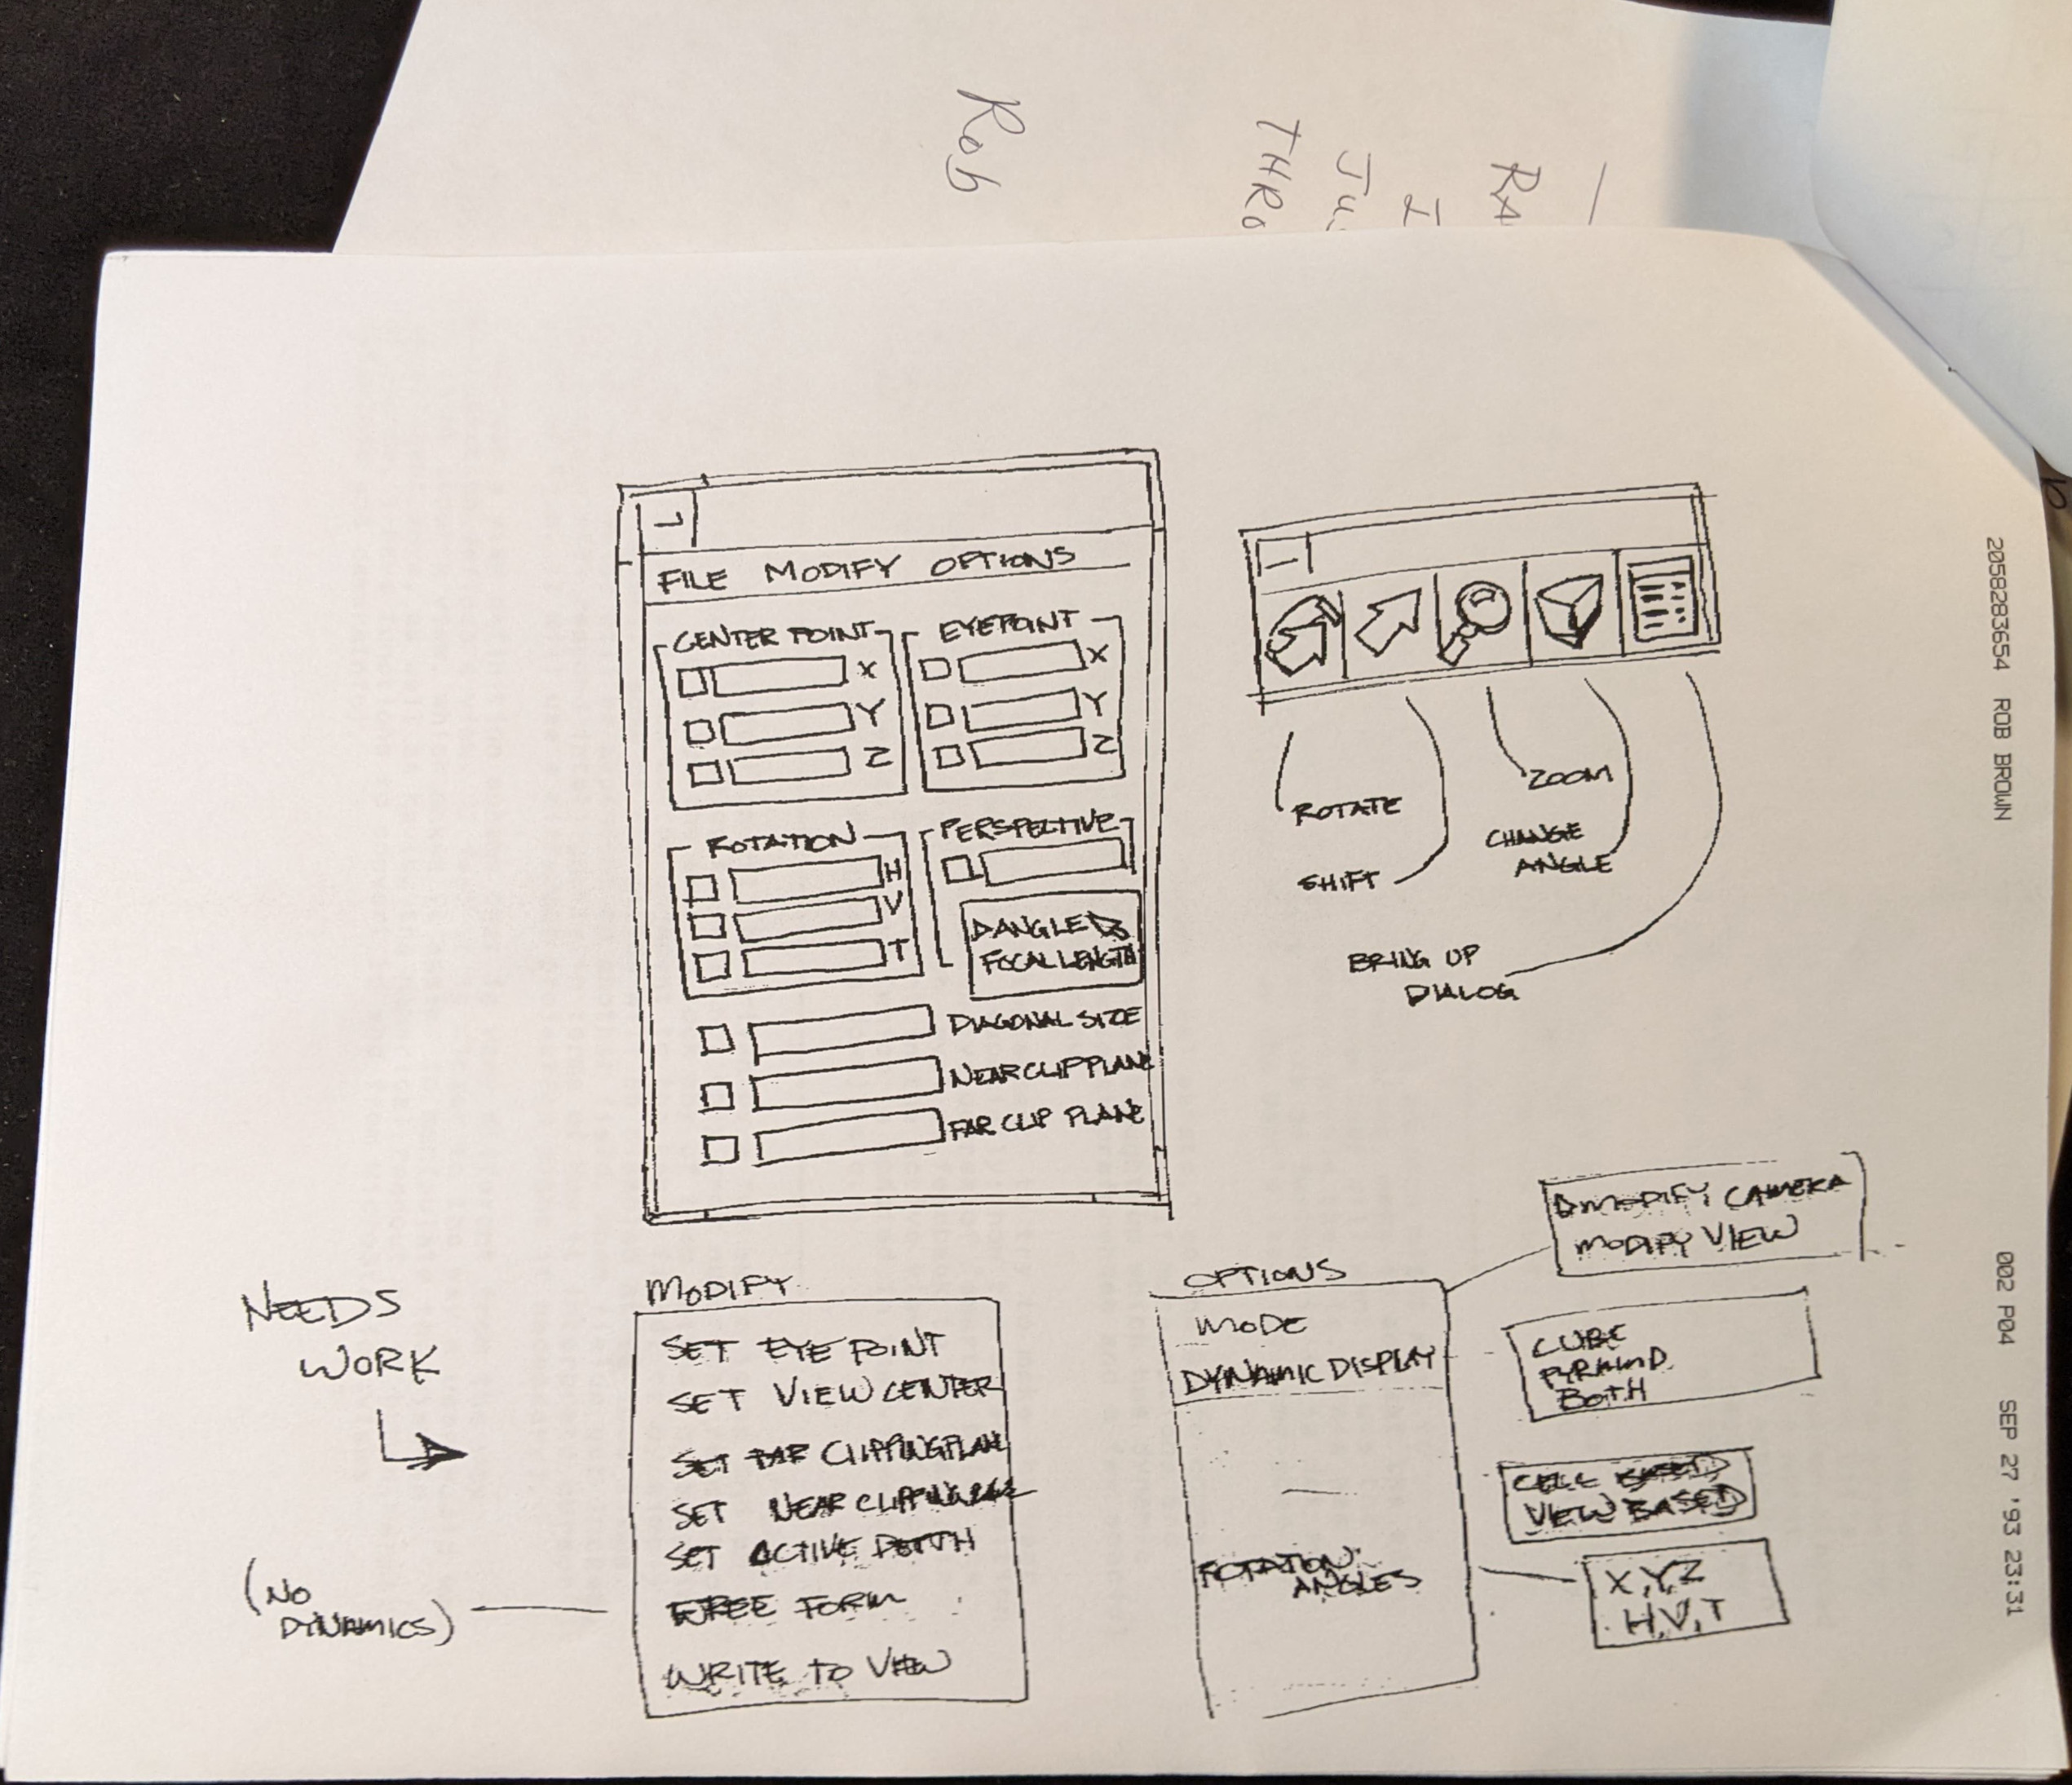 Rob
THRO
Ju
I
RA
FILE MODIFY OPTIONS
CENTER POINT
X
Y
Z
EYEPOINT
X
Y
Z
ROTATION
H
V
T
PERSPECTIVE
ANGLE
FOCAL LENGTH
DIAGONAL SIZE
NEAR CLIP PLANE
FAR CLIP PLANE
ROTATE
SHIFT
ZOOM
CHANGE
ANGLE
BRING UP
DIALOG
NEEDS
WORK
(NO
DYNAMICS)
MODIFY
SET EYE POINT
SET VIEW CENTER
SET FAR CLIPPING PLAN
SET NEAR CLIPPING
SET ACTIVE DEPTH
FREE FORM
WRITE TO VIEW
OPTIONS
MODE
DYNAMIC DISPLAY
ROTATION
ANGLES
MODIFY CAMERA
MODIFY VIEW
CUBE
PYRAMID
BOTH
CELL BASED
VIEW BASED
X,Y,Z
H,V,T
2058283654 ROB BROWN 002 P04 SEP 27 '93 23:31